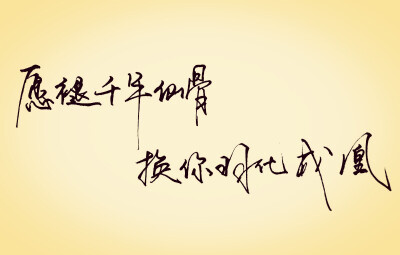 愿褪千年仙骨
换你羽化成凰